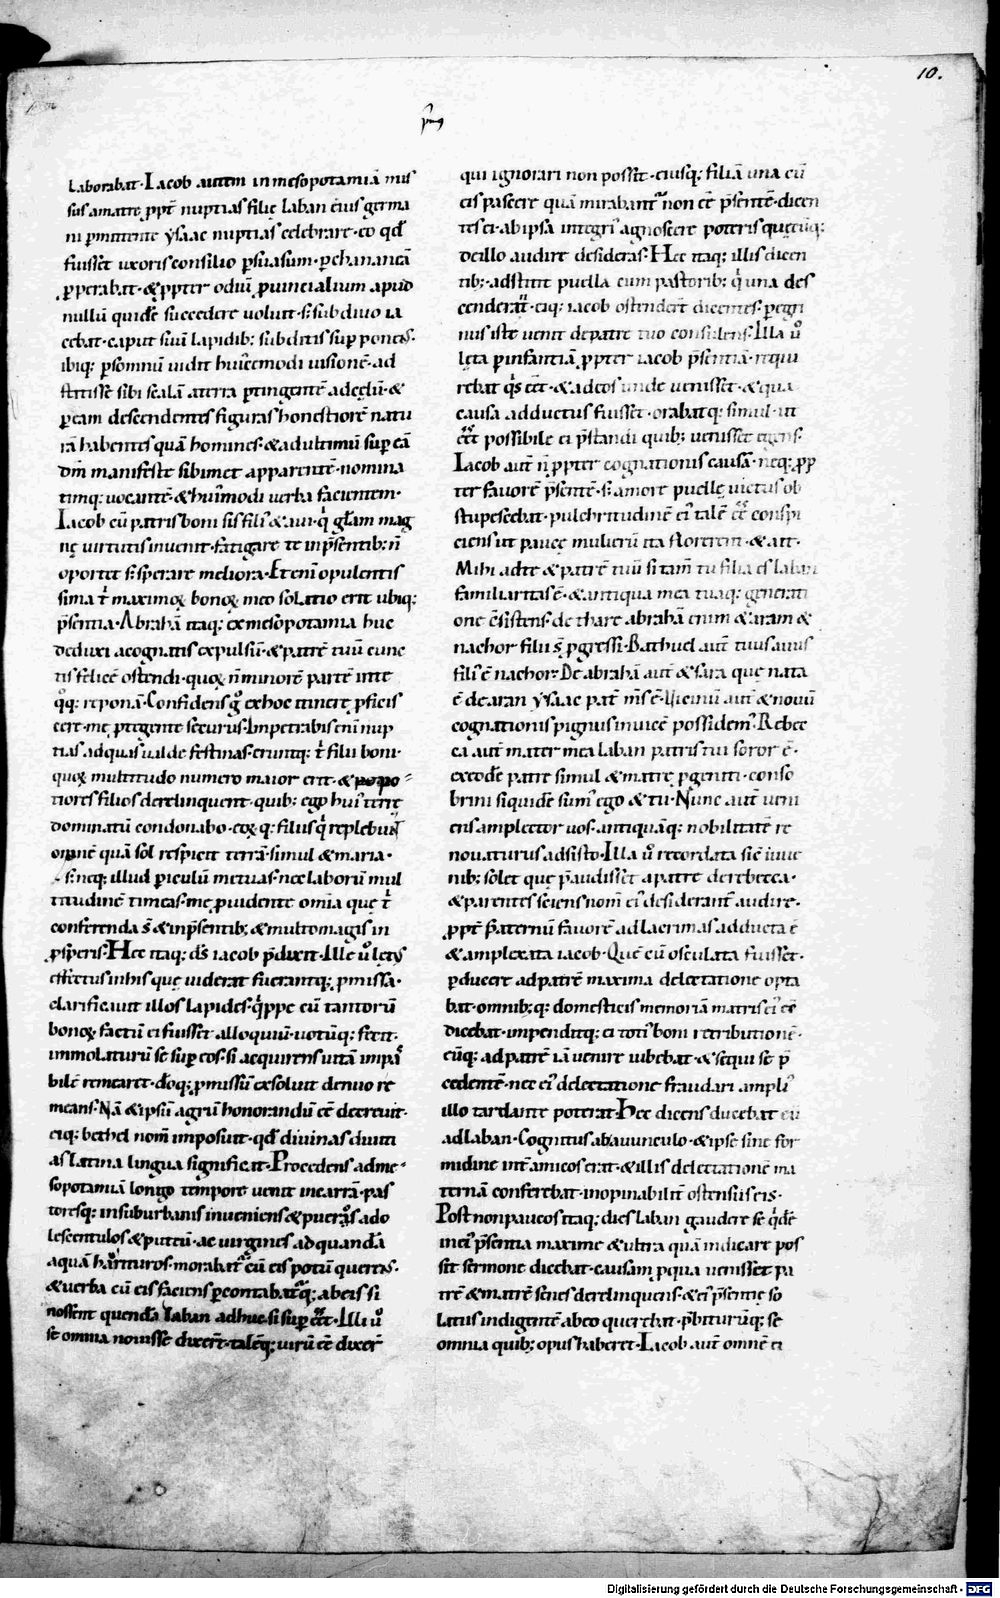 10.
p̄mꝰ
laborabat·Iacob autem in mesopotamiā mis
sus a matre ꝓpt̄ nuptias filię laban eius germa
ni ꝑmittente ysaac nuptias celebrare·eo qđ
fuisset uxoris consilio ꝑsuasum·ꝑ chananeā
ꝓperabat·&ꝓpter odiū ꝓuincialium apud
nullū quidē succedere uoluit·s; sub diuo ia
cebat·caput suū lapidib; subditis suꝑ ponens·
ibiq; ꝑ somniū uidit huiꝰcemodi uisionē·ad
stitisse sibi scalā a terra ꝑtingentē ad cęlū·&
ꝑ eam descendentes figuras honestiorē natu
rā habentes quā homines·& ad ultimū suꝑ eā
dm̄ manifeste sibimet apparentē·nomina
timq; uocantē·&huiꝰmodi uerba facientem·
Iacob cū patris boni sis filiꝰ & aui·q̇ gl̄am mag
nę uirtutis inuenit·fatigare te in p̄sentib; n̄
oportet s; sperare meliora·Et eni opulentis
sima t̄ maximoꝝ bonoꝝ meo solatio erit ubiq;
p̄sentia·Abrahā itaq; ex mesopotamia huc
deduxi a cognatis expulsū·&patrē tuū eunc
tis felicē ostendi·quoꝝ n̄ minorē partē in te
q̊q; reponā·Confidens g̊ ex hoc itinere ꝓficis
cere·me ꝓtegente securus·Impetrabis eni nup
tias ad quas ualde festinas·eruntq; t̄ filii boni·
quoꝝ multitudo numero maior erit·&popo
tiores filios derelinquent·quib; ego huiꝰ terrę
dominatū condonabo·eoꝝ q; filiis q̇ replebunt
omnē quā sol respicit terrā·simul & maria·
s; neq; illud periculū metuas·nec laborū mul
titudinē timeas·me ꝓuidente omīa quę t̄
conferenda s̄ & in p̄sentib; & multo magis in
ꝓsperis·Hec itaq; dš iacob p̄dixit·Ille ů letꝰ
effectus in his quę uiderat fuerantq; ꝓmissa·
clarificauit illos lapides·q̇ppe cū tantorū
bonoꝝ factū ei fuisset alloquiū·uotūq; fecit·
immolaturū se suꝑ eos·si acquirens uitā impā
bilē remearet·dōq; ꝓmissū exsoluit denuo re
means·Nā & ipsū agrū honorandū cē decreuit·
eiq; bethel nom̄ imposuit·qđ diuinas duiti
as latina lingua significat·Procedens ad me
sopotamiā longo tempore uenit in carrā·pas
toresq; in suburbanis inueniens & pueros ado
lescentulos & puteū·ac uirgines ad quandā
aquā hauturos·morabatꝰ cū eis potū querens·
& uerba cū eis faciens ꝑcontabatꝰq; ab eis si
nossent quendā laban adhuc·si suꝑ eēt·Illi ů
se omnia nouisse dixert̄·talēq; uirū cē dixer̄
qui ignorari non possit·eiusq; filiā una cū
eis pascere quā mirabantꝰ non cē p̄sentē·dicen
tes ei·ab ipsa integriꝰ agnoscere poteris quęcūq;
de illo audire desideras·Hec itaq; illis dicen
tib; adstitit puella cum pastorib; q̇ una des
cenderat̄·eiq; iacob ostendert̄ dicentes·ꝑegri
nus iste uenit de patre tuo consulens·Illa ů
lęta ꝑ infantiā ꝓpter iacob p̄sentiā·requi
rebat q̇s eēt·& ad eos unde uenisset·& qua
causa adductus fuisset·orabatq; simul·ut
eēt possibile ei p̄standi quib; uenisset egens·
Iacob aut̄ n̄ ꝓpter cognationis causā·neq; ꝓp
ter fauorē p̄sentē·s; amore puellę uictus ob
stupescebat·pulchritudinē eiꝰ talē cē conspi
ciens ut paucę mulierū ita florerent·& ait·
Mihi ad te & patrē tuū si tam̄ tu filia es laban
familiaritas ē·& antiqua mea tuaq; generati
one c̄sistens·de thare abrahā enim & aram &
nachor filii s̄ ꝓgressi·Bathuel aut̄ tuus auus
filiꝰ ē nachor·De abrahā aut̄ & sara quę nata
ē de aran ysaac pat̄ mš ē·Vicinū aut̄ & nouū
cognationis pignus inuicē possidemꝰ·Rebec
ca aut̄ mater mea laban patris tui soror ē·
ex eodē patre simul & matre ꝓgeniti·conso
brini siquidē sumꝰ ego & tu·Nunc aut̄ ueni
ens amplector uos·antiquāq; nobilitatē re
nouaturus adsisto·Illa ů recordata sic̄ iuue
nib; solet quę p̄audisset a patre de rebecca·
& parentes sciens nom̄ eiꝰ desiderant̄ audire·
ꝓpt̄ paternū fauorē ad lacrimas adducta ē
& amplexata iacob·Quē cū osculata fuisset·
ꝑducere ad patrē maxima delectatione opta
bat·omnib; q; domesticis memoriā matris eiꝰ cē
dicebat·impenditq; ei totiꝰ boni retributionē·
cūq; ad patrē iā uenire iubebat·& sequi se p̄
cedentē·nec eiꝰ delectatione fraudari ampliꝰ
illo tardante poterat·Hec dicens ducebat eū
ad laban·Cognitus ab auunculo·&ipse sine for
midine int̄ amicos erat·&illis delectationē ma
ternā conferebat·inopinabilit̄ ostensus eis·
Post non paucos itaq; dies laban gaudere se q̇dē
in eiꝰ p̄sentia maxime & ultra quā indicare pos
sit sermone dicebat·causam ꝑ qua uenisset pa
trē & matrē senes derelinquens·&eiꝰ p̄sentię so
latius indigentē ab eo querebat·p̄biturūq; se
omnia quib; opus haberet·Iacob aut̄ omnē ei
Digitalisierung gefördert durch die Deutsche Forschungsgemeinschaft - DFG